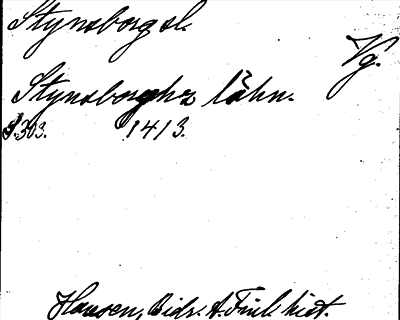 Stynsborg sl.
Vg.
Stynsborghz lähn.
S. 303. 1413.
Hausen, Bidr. t. Finl. hist.